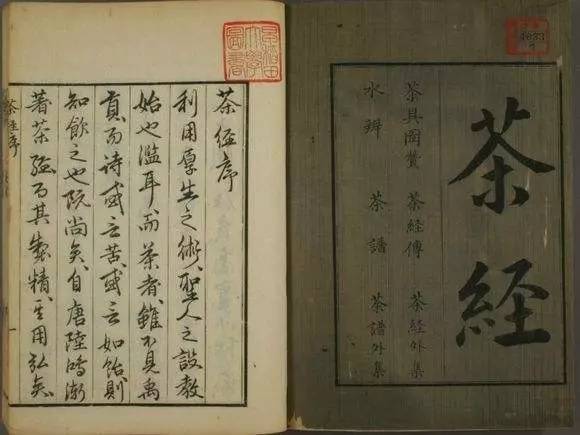 茶経
茶具圖贊 茶経傳 茶経外集
水辨 茶譜 茶譜外集
茶経序
利用厚生之術聖人之設教
始也濫耳而茶者雖不見禹
貢而詩或云苦或云如飴則
知飲之也既尚矣自唐陸鴻漸
著茶經而其製精其用弘矣
茶經序
一